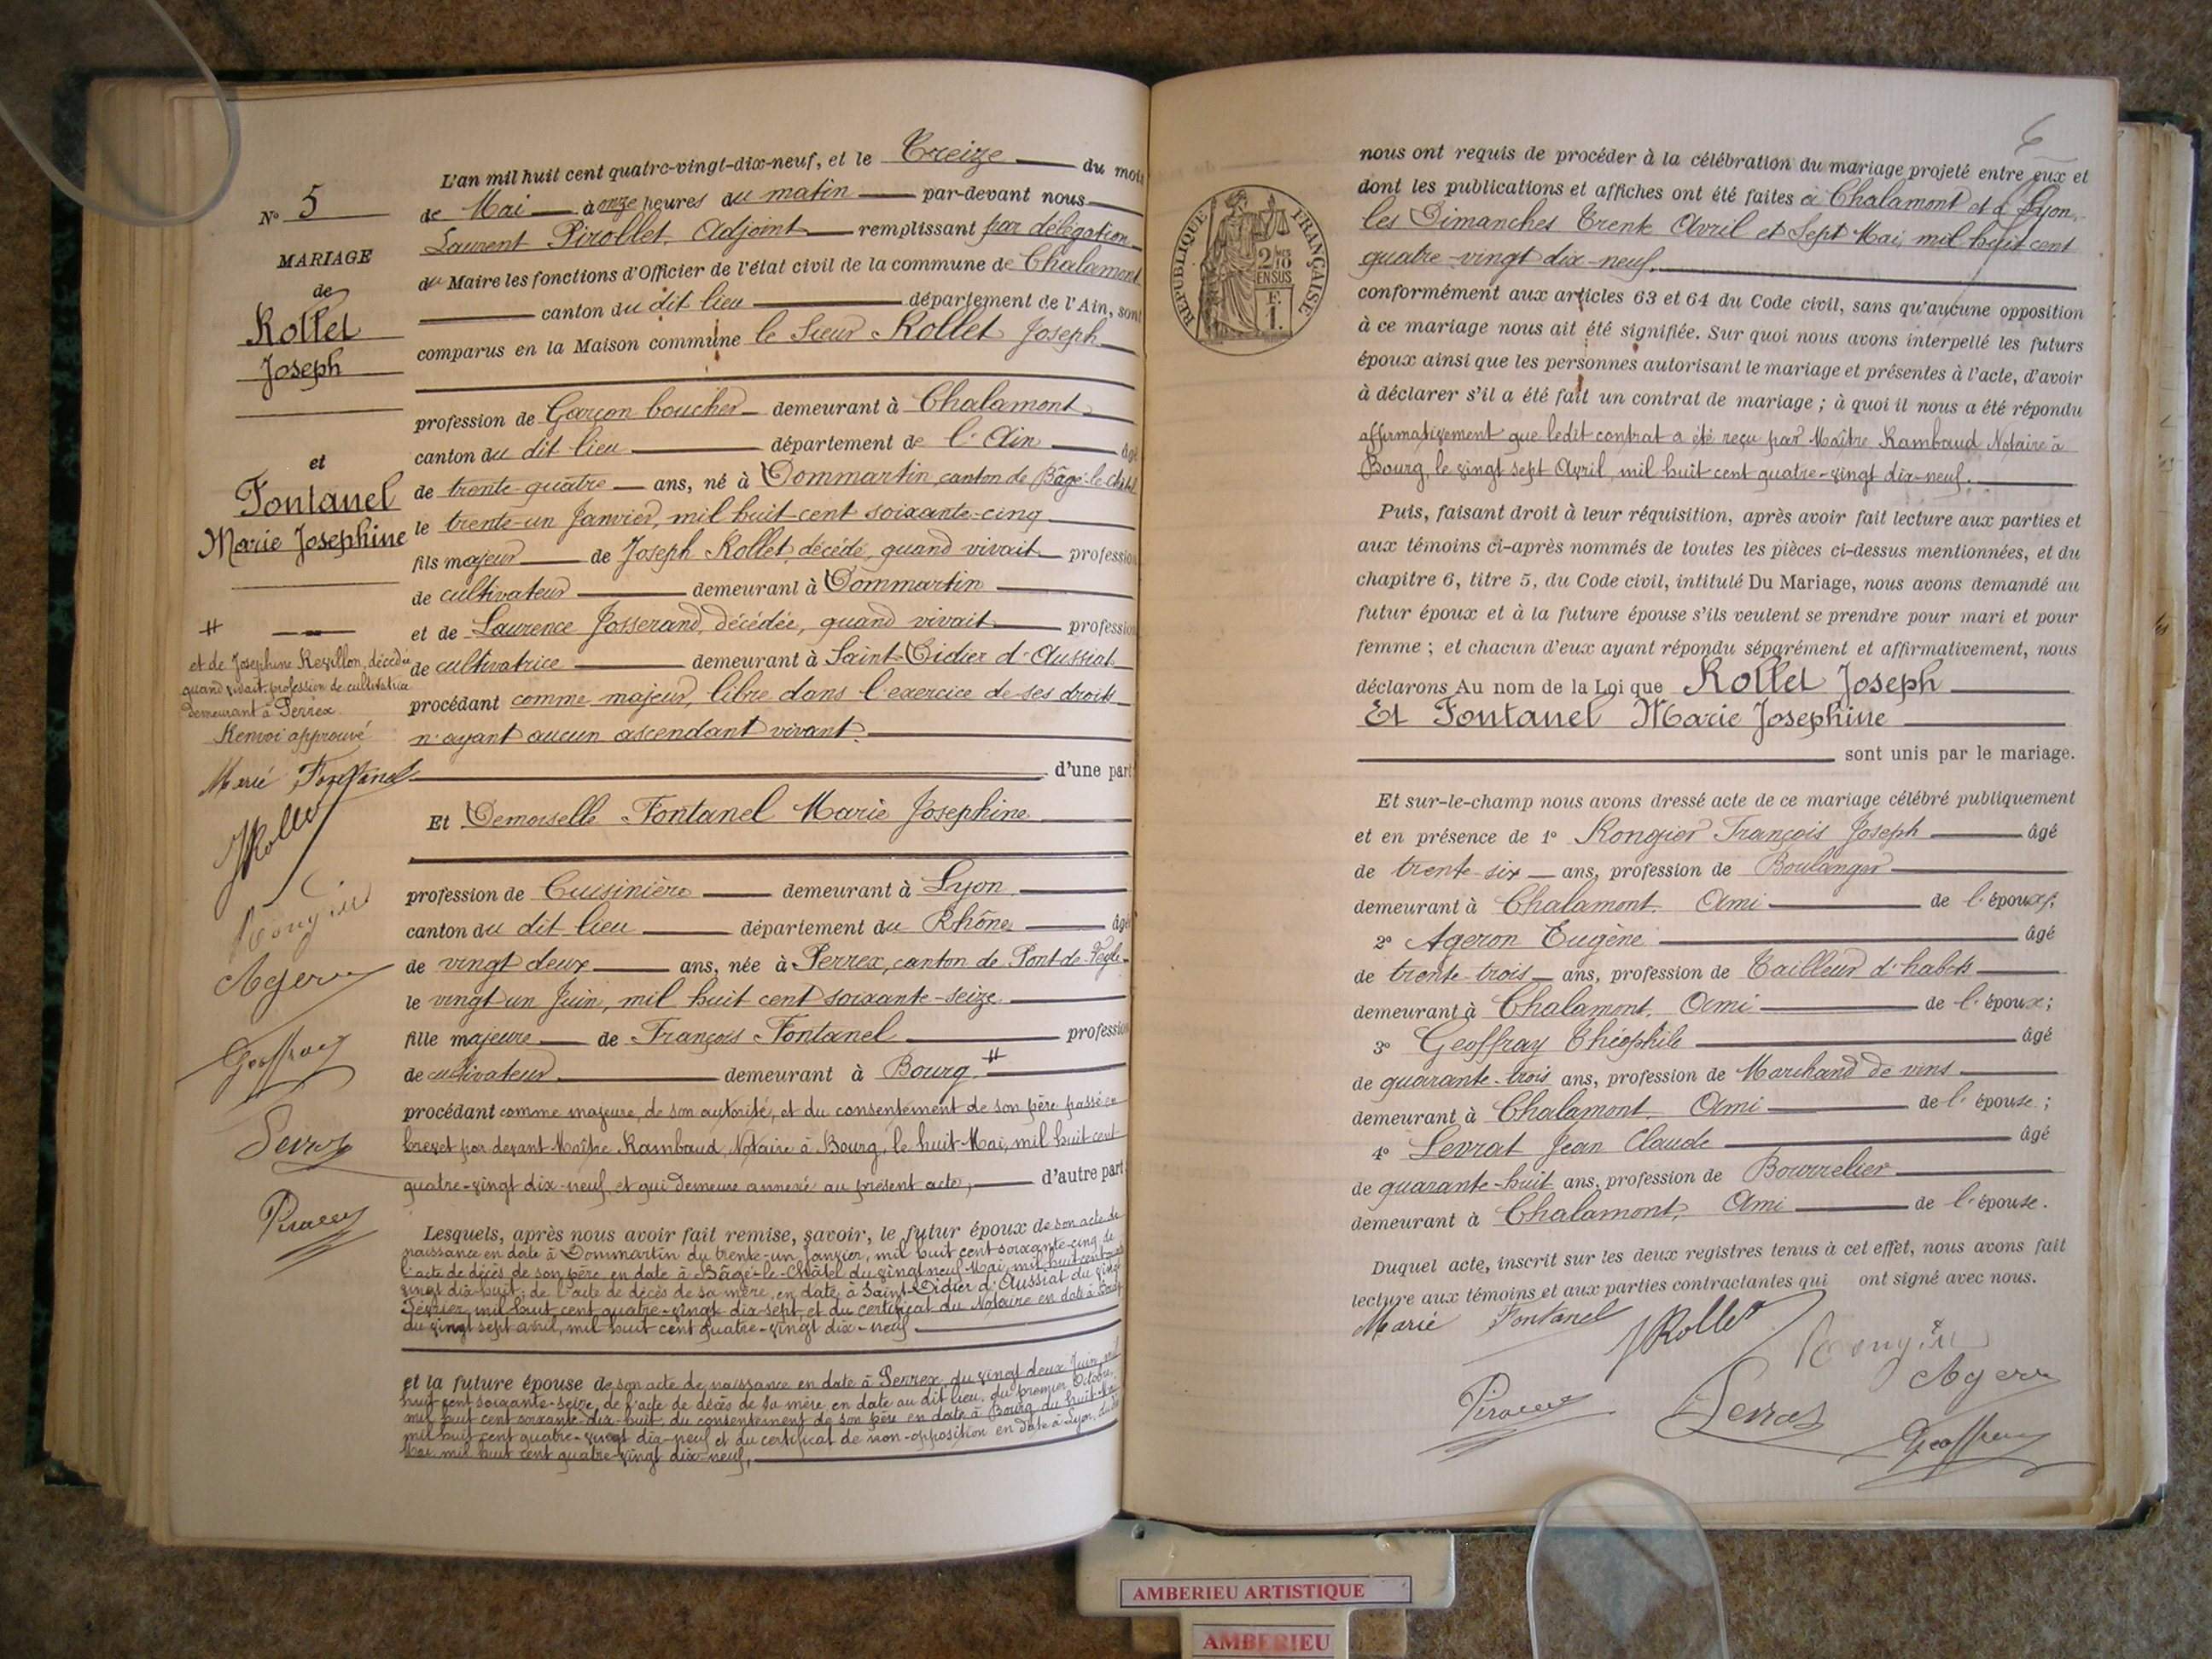 N° 5
MARIAGE
de
Rollet
Joseph
et
Fontanel
Marie Josephine
#
et de Josephine Revillon, décédée
quand vivait profession de cultivatrice
demeurant à Perrex
Renvoi approuvé
Marie Fontanel
JRollet
Rongier
Ageron
Geoffray
Levrat
Pirollet
L'an mil huit cent quatre-vingt-dix-neuf, et le Treize du mois
de Mai à onze heures du matin par-devant nous
Laurent Pirollet, Adjoint remplissant par délégation
du Maire les fonctions d'Officier de l'état civil de la commune de Chalamont
canton du dit lieu département de l'Ain, sont
comparus en la Maison commune le Sieur Rollet Joseph
profession de Garçon boucher demeurant à Chalamont
canton du dit lieu département de l'Ain âgé
de trente-quatre ans, né à Dommartin, canton de Bâgé-le-Châtel
le trente-un Janvier, mil huit-cent soixante-cinq
fils majeur de Joseph Rollet, décédé, quand vivait profession
de cultivateur demeurant à Dommartin
et de Laurence Josserand, décédée, quand vivait profession
de cultivatrice demeurant à Saint-Didier d'Aussiat
procédant comme majeur, libre dans l'exercice de ses droits
n'ayant aucun ascendant vivant.
d'une part
Et Demoiselle Fontanel Marie Josephine
profession de Cuisinière demeurant à Lyon
canton du dit lieu département du Rhône âgée
de vingt deux ans, née à Perrex, canton de Pont-de-Veyle
le vingt un Juin, mil huit cent soixante-seize
fille majeure de François Fontanel profession
de cultivateur demeurant à Bourg #
procédant comme majeure, de son autorité, et du consentement de son père passé en
brevet par devant Maître Rambaud, Notaire à Bourg, le huit Mai, mil huit cent
quatre-vingt dix-neuf et qui demeure annexé au présent acte, d'autre part
Lesquels, après nous avoir fait remise, savoir, le futur époux de son acte de
naissance en date à Dommartin du trente-un Janvier, mil huit cent soixante-cinq, de
l'acte de décès de son père en date à Bâgé-le-Châtel du vingt neuf Mai, mil huit cent
vingt dix-huit; de l'acte de décès de sa mère, en date à Saint-Didier d'Aussiat du vingt
Février mil huit cent quatre-vingt dix-sept et du certificat du Notaire en date à Bourg
du vingt sept avril, mil huit cent quatre-vingt dix-neuf
et la future épouse de son acte de naissance en date à Perrex, du vingt deux Juin, mil
huit cent soixante-seize, de l'acte de décès de sa mère en date au dit lieu, du premier Octobre,
mil huit cent soixante-dix-huit, du consentement de son père en date à Bourg du huit Mai
mil huit cent quatre-vingt dix-neuf et du certificat de non-opposition en date à Lyon, du
Mai mil huit cent quatre-vingt dix-neuf,
RÉPUBLIQUE FRANÇAISE
2/10 EN SUS
F. 1.
6
nous ont requis de procéder à la célébration du mariage projeté entre eux et
dont les publications et affiches ont été faites à Chalamont et à Lyon,
les Dimanches Trente Avril et Sept Mai, mil huit cent
quatre-vingt dix-neuf.
conformément aux articles 63 et 64 du Code civil, sans qu'aucune opposition
à ce mariage nous ait été signifiée. Sur quoi nous avons interpellé les futurs
époux ainsi que les personnes autorisant le mariage et présentes à l'acte, d'avoir
à déclarer s'il a été fait un contrat de mariage ; à quoi il nous a été répondu
affirmativement que ledit contrat a été reçu par Maître Rambaud Notaire à
Bourg, le vingt sept Avril, mil huit cent quatre-vingt dix-neuf.
Puis, faisant droit à leur réquisition, après avoir fait lecture aux parties et
aux témoins ci-après nommés de toutes les pièces ci-dessus mentionnées, et du
chapitre 6, titre 5, du Code civil, intitulé Du Mariage, nous avons demandé au
futur époux et à la future épouse s'ils veulent se prendre pour mari et pour
femme ; et chacun d'eux ayant répondu séparément et affirmativement, nous
déclarons Au nom de la Loi que Rollet Joseph
Et Fontanel Marie Josephine
sont unis par le mariage.
Et sur-le-champ nous avons dressé acte de ce mariage célébré publiquement
et en présence de 1° Rongier François Joseph âgé
de trente-six ans, profession de Boulanger
demeurant à Chalamont. Ami de l'époux;
2° Ageron Eugène âgé
de trente-trois ans, profession de Tailleur d'habits
demeurant à Chalamont. Ami de l'époux;
3° Geoffray Théophile âgé
de quarante-trois ans, profession de Marchand de vins
demeurant à Chalamont. Ami de l'épouse ;
4° Levrat Jean Claude âgé
de quarante-huit ans, profession de Bourrelier
demeurant à Chalamont, Ami de l'épouse.
Duquel acte, inscrit sur les deux registres tenus à cet effet, nous avons fait
lecture aux témoins et aux parties contractantes qui ont signé avec nous.
Marie Fontanel JRollet Rongier
Ageron
Pirollet Levrat Geoffray
AMBERIEU ARTISTIQUE
AMBERIEU